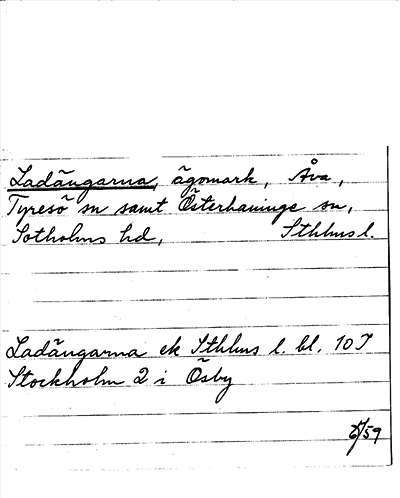 Ladängarna, ägomark, Åva,
Tyresö sn samt Österhaninge sn,
Sotholms hd, Sthlms l.
Ladängarna ek Sthlms l. bl. 10 J
Stockholm 2 i Ösby
/59